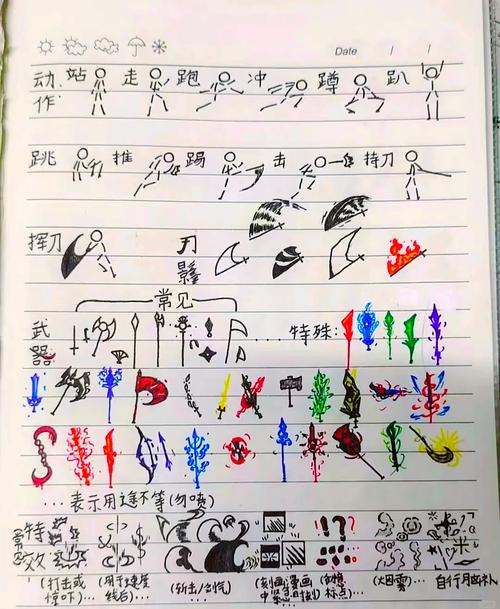 Date
动 站 走 跑 冲 蹲 趴
作:
跳 推 踢 击 持刀
挥刀 刀
影
常见
武 ...... 特殊:
器:
...表示用途不等(勿喷)
常见 特
效
(打击或惊吓)... (用于速度线后)... (斩击/剑气) (刻画漫画中紧急) (幻想标点)... (大团雾)... 自行脑补